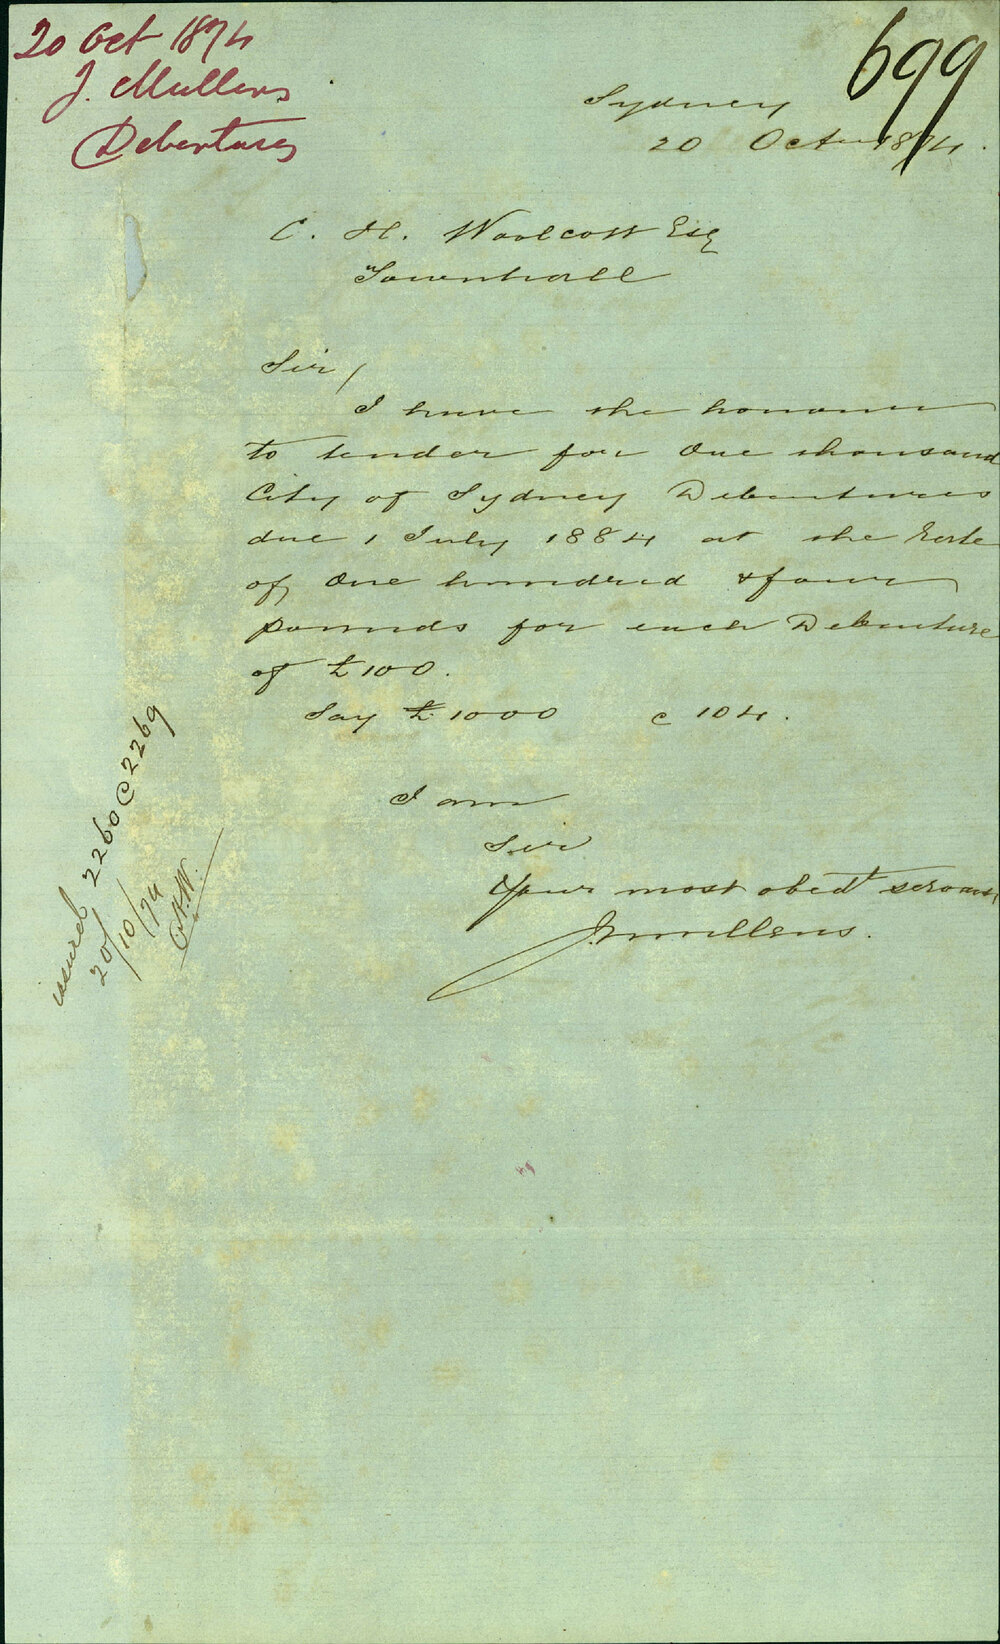 20 Oct 1874
J. Mullens
Debentures
699
Sydney
20 Octr 1874.
C. H. Woolcott Esq
Townhall
Sir/
I have the honour
to tender for One thousand
City of Sydney Debentures
due 1 July 1884 at the Rate
of One hundred & four
pounds for each Debenture
of £100.
Say £1000 @ 104.
I am
Sir
Your most obedt servant
J Mullens.
issued 2260 @ 2269
20/10/74
C.H.W.